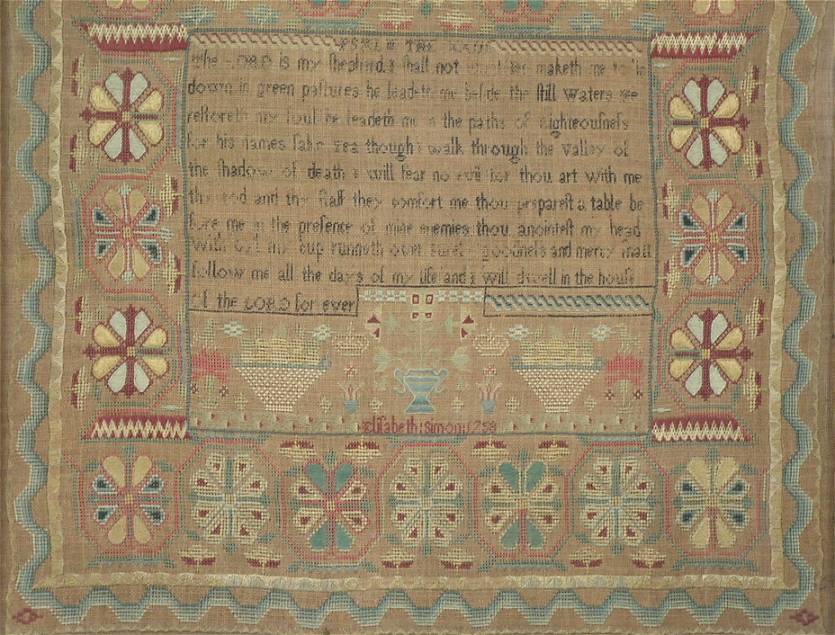 PSALM THE XXIII
the LORD is my shepherd i shall not want he maketh me to lie
down in green paſtures he leadeth me beſide the ſtill waters he
reſtoreth my ſoul he leadeth me in the paths of righteouſneſs
for his names ſake yea though i walk through the valley of
the ſhadow of death i will fear no evil for thou art with me
thy rod and thy ſtaff they comfort me thou prepareſt a table be
fore me in the preſence of mine enemies thou anointeſt my head
with oil my cup runneth over ſurely goodneſs and mercy ſhall
follow me all the days of my life and i will dwell in the houſe
of the LORD for ever
eliſabeth:simon:1758